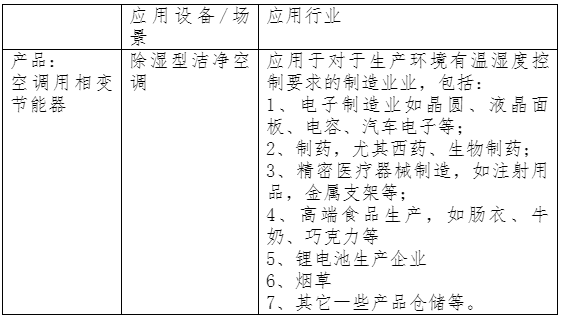 应用设备/场
景
应用行业
产品：
空调用相变
节能器
除湿型洁净空
调
应用于对于生产环境有温湿度控
制要求的制造业业，包括：
1、电子制造业如晶圆、液晶面
板、电容、汽车电子等；
2、制药，尤其西药、生物制药；
3、精密医疗器械制造，如注射用
品，金属支架等；
4、高端食品生产，如肠衣、牛
奶、巧克力等
5、锂电池生产企业
6、烟草
7、其它一些产品仓储等。